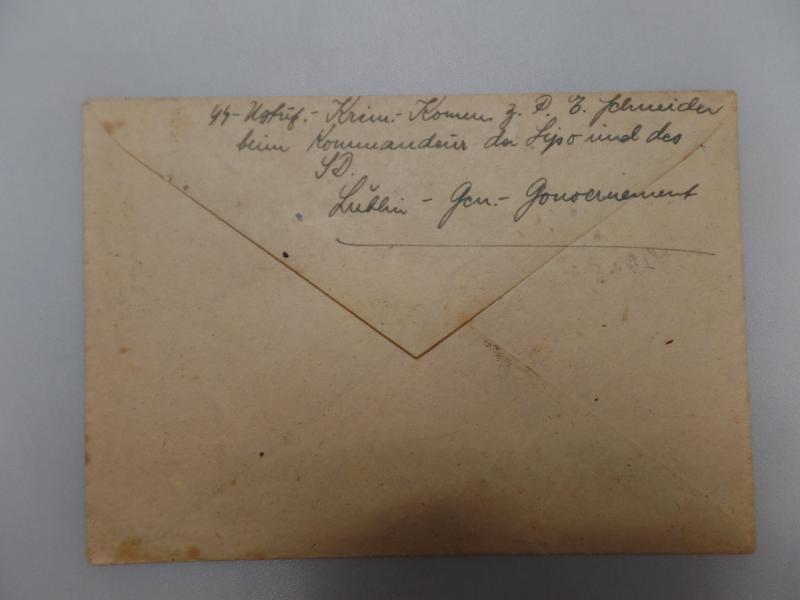 SS-Ustuf.- Krim.- Komm. z. P. E. Schneider
beim Kommandeur der Sipo und des
SD.
Lublin - Gen.- Gouvernement